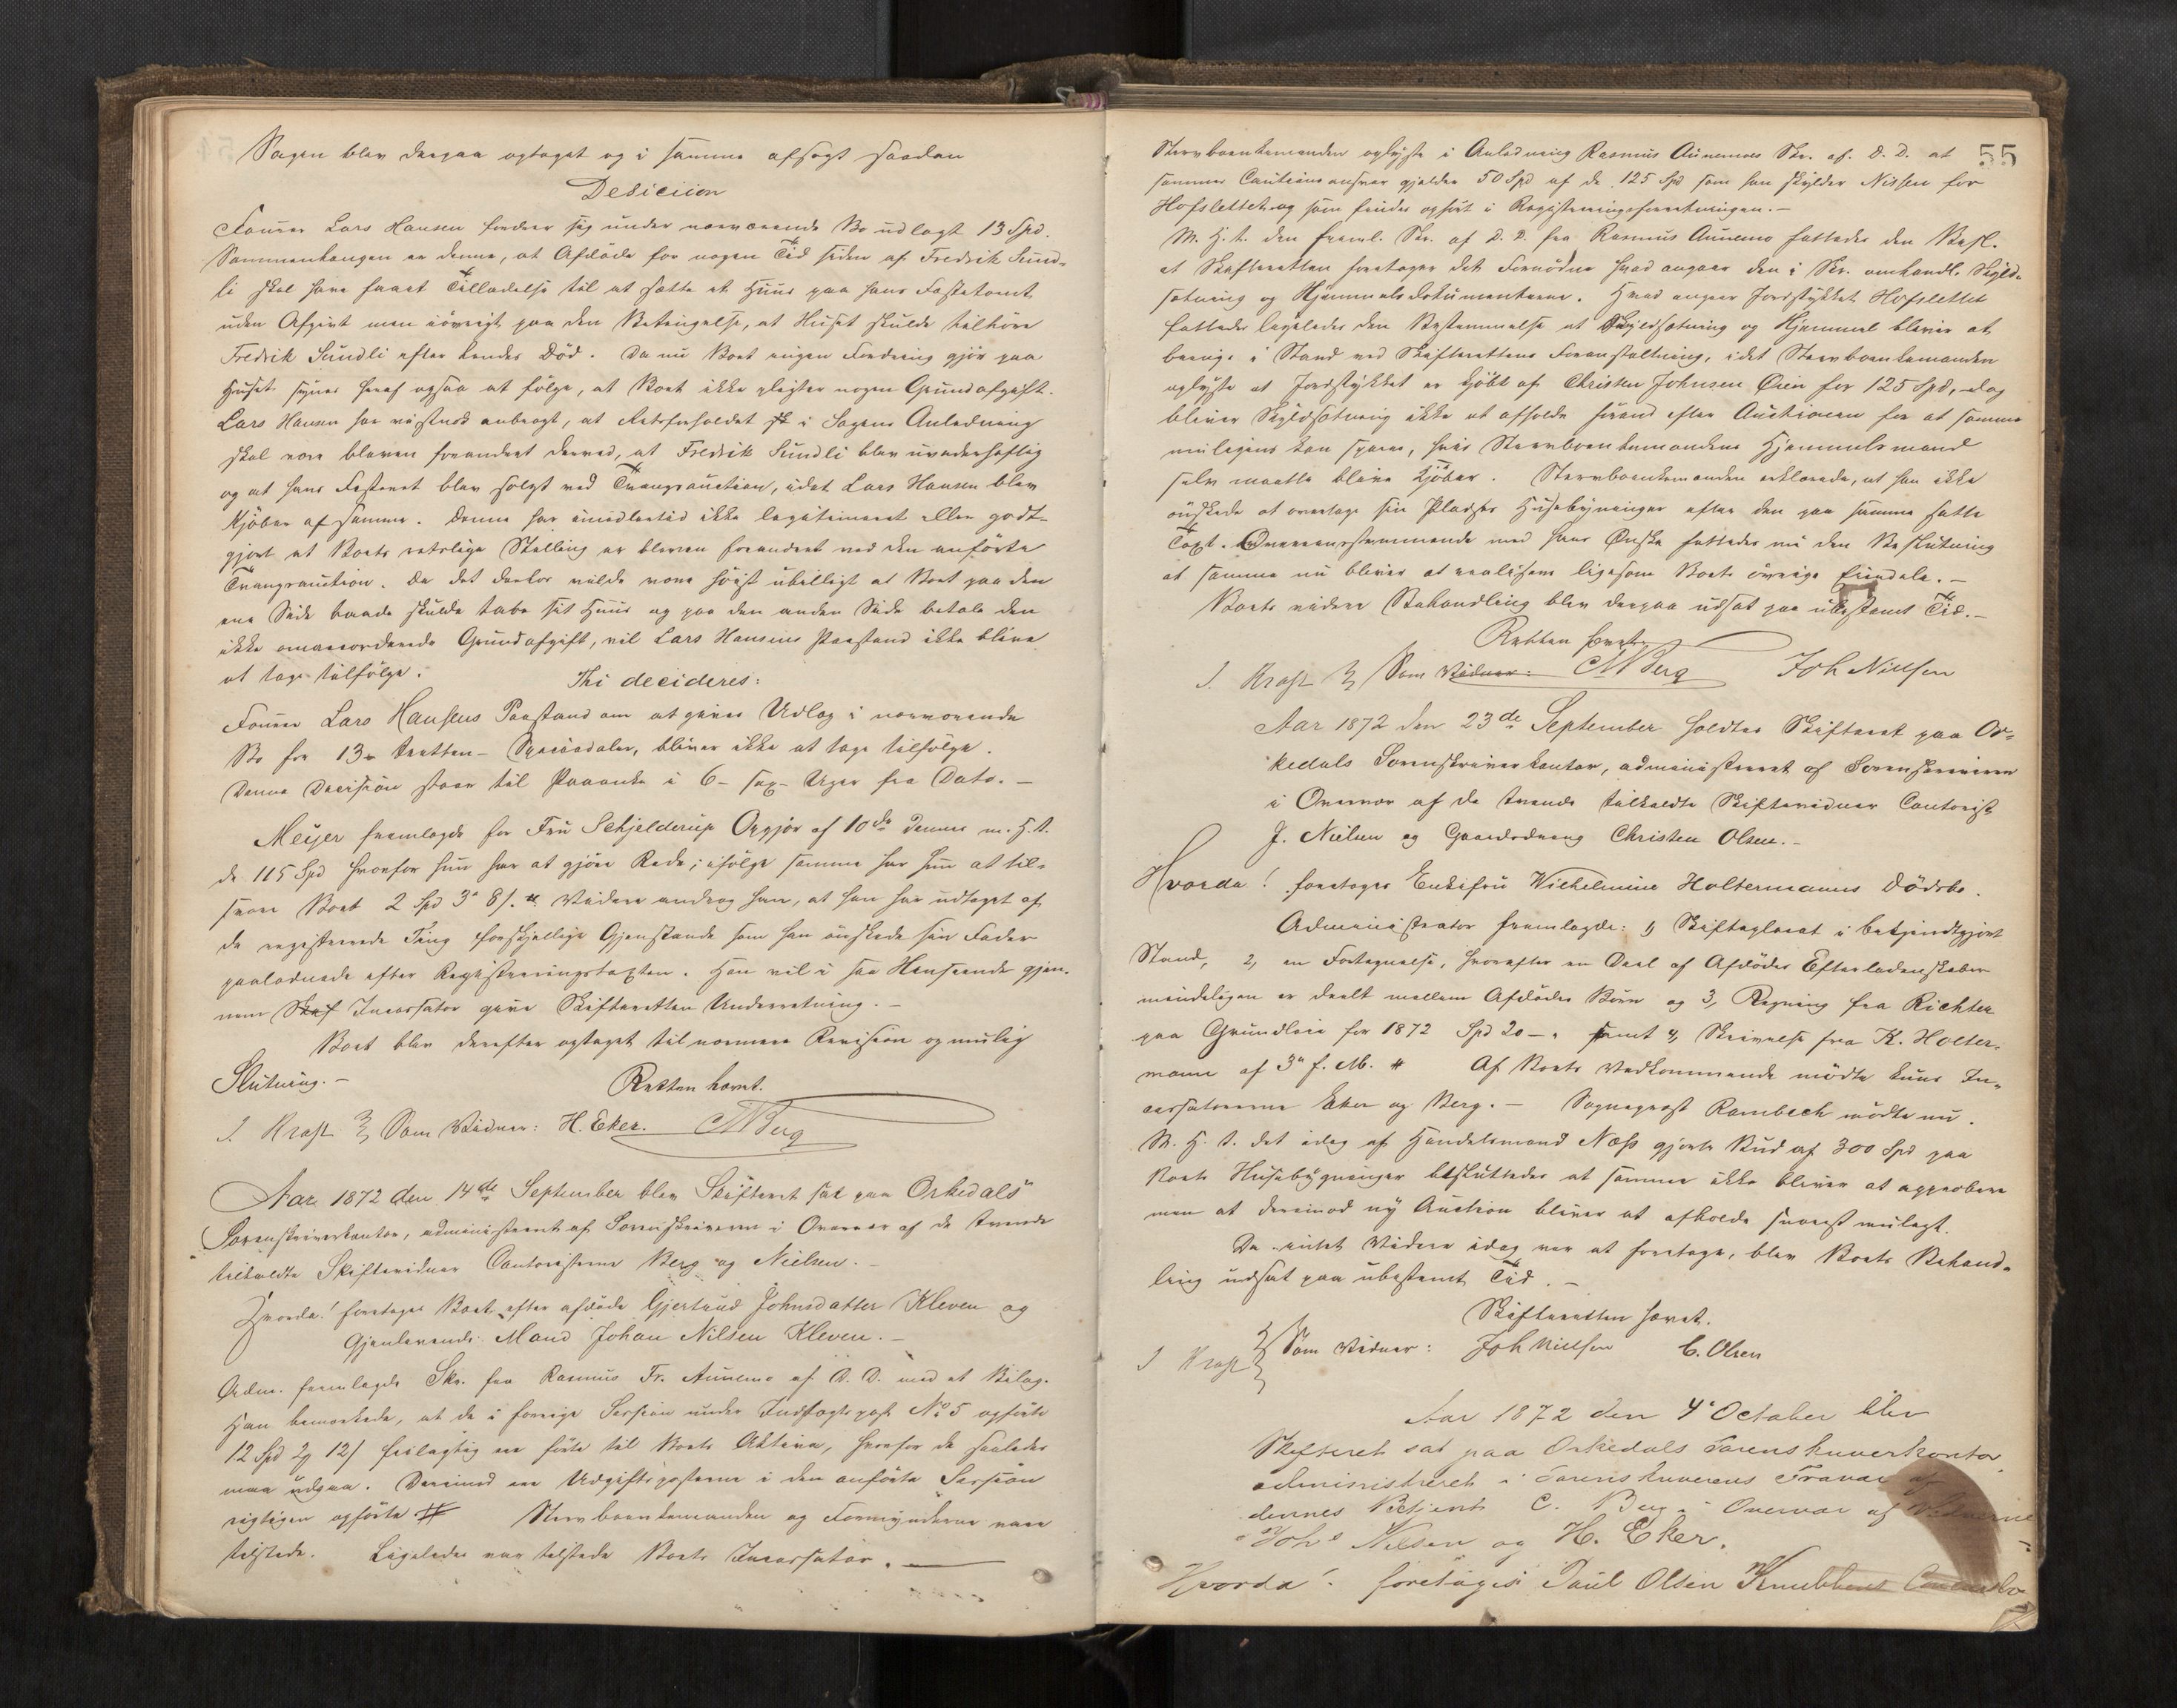 Sagen blev derpaa optaget og i samme afsagt saadan
Desiciion
Fourer Lars Hansen fordrer sig under nærværende Bo udlagt 13 Spd.
Sammenhængen er denne, at Afdøde for nogen Tid siden af Fredrik Sund-
li skal have faaet Tilladelse til at sætte et Huus paa hans Fæstetomt
uden Afgivt men iøvrigt paa den Betingelse, at Huset skulde tilhøre
Fredrik Sundli efter hendes Død. Da nu Boet ingen Fordring gjør paa
Huset synes heraf ogsaa at følge, at Boet ikke pligter nogen Grundafgift.
Lars Hansen har vistnok anbragt, at Retsforholdet i Sagens Anledning
skal være bleven forandret derved, at Fredrik Sundli blev uvederhæftig
og at hans Festeret blev solgt ved Tvangsauction, idet Lars Hansen blev
Kjøber af samme. Denne har imidlertid ikke legitimeret eller godt-
gjort at Boets retslige Stilling er bleven forandret ved den anførte
Tvangsauction. Da det derfor vilde være høist ubilligt at Boet paa den
ene Side baade skulde tabe sit Huus og paa den anden Side betale den
ikke omaccorderede Grundafgift, vil Lars Hansens Paastand ikke blive
at tage tilfølge.
Thi decideres:
Fourer Lars Hansens Paastand om at gives Udlæg i nærværende
Bo for 13 - tretten - Speciedaler, bliver ikke at tage tilfølge.
Denne Decision staar til Paaanke i 6 - sex - Uger fra Dato. -
Meijer fremlagde for Fru Schjelderup Opgjør af 10de dennes m. H. t.
de 115 Spd hvorfor hun har at gjøre Rede; ifølge samme har hun at til-
svare Boet 2 Spd 3 8/. Videre androg han, at han har udtaget af
de registrerede Ting forskjellige Gjenstande som han ønskede sin Fader
paaladnede efter Registreringstaxten. Han vil i saa Henseende gjen-
nem Incassator give Skifteretten Underretning. -
Boet blev derefter optaget til nærmere Revision og mulig
Slutning. -
Retten hævet.
J. Kraft Som Vidner: H. Eker. C M Berg
Aar 1872 den 14de September blev Skifteret sat paa Orkedals
Sorenskriverkontor, administreret af Sorenskriveren i Overvær af de tvende
tilkaldte Skiftevidner Cantoristerne Berg og Nielsen. -
Hvorda! foretoges Boet efter afdøde Gjertrud Johnsdatter Kleven og
Gjenlevende Mand Johan Nilsen Kleven. -
Adm. fremlagde Skr. fra Rasmus Fr. Aunemo af D. D. med et Bilag.
Han bemærkede, at de i forrige Session under Indtægtspost No 5 opførte
12 Spd 2 12/ feilagtig ere førte til Boets Aktiva, hvorfor de saaledes
maa udgaa. Derimod ere Udgiftsposterne i den anførte Session
rigtigen opførte # Stervboenkemanden og Formynderne vare
tilstede. Ligeledes var tilstede Boets Incassator. -
55
Stervboenkemanden oplyste i Anledning Rasmus Aunemos Skr. af D. D. at
sammes Cautionsansvar gjelder 50 Spd af de 125 Spd som han skylder Nissen for
Hofslettet og som findes opført i Registreringsforretningen. -
M. H. t. den freml. Skr. af D. D. fra Rasmus Aunemo fattedes den Besl.
at Skifteretten foretager det Fornødne hvad angaar den i Skr. omhandl. Skyld-
sætning og Hjemmelsdokumenterne. Hvad angaar Jordstykket Hofslettet
fattedes ligeledes den Bestemmelse at Skyldsætning og Hjemmel bliver at
bringe i Stand ved Skifterettens Foranstaltning, idet Stervboenkemanden
oplyste at Jordstykket er kjøbt af Christen Johnsen Øien for 125 Spd, dog
bliver Skyldsætning ikke at afholde førend efter Auctionen for at samme
muligens kan spares, hvis Stervboenkemandens Hjemmelsmand
selv maatte blive Kjøber. Stervboenkemanden erklærede, at han ikke
ønskede at overtage sin Pladses Husebygninger efter den paa samme satte
Taxt. Overensstemmende med hans Ønske fattedes nu den Beslutning
at samme nu bliver at realisere ligesom Boets øvrige Eiendele. -
Boets videre Behandling blev derpaa udsat paa ubestemt Tid. -
Retten hævet
J. Kraft Som Vidner: C M Berg Joh Nielsen
Aar 1872 den 23de September holdtes Skifteret paa Or-
kedals Sorenskriverkontor, administreret af Sorenskriveren
i Overvær af de tvende tilkaldte Skiftevidner Cantorist
J. Nielsen og Gaardsdreng Christen Olsen. -
Hvorda! foretoges Enkefru Wilhelmine Holtermanns Dødsbo.
Administrator fremlagde: 1, Skifteplacat i bekjendtgjort
Stand, 2, en Fortegnelse, hvorefter en Deel af Afdødes Efterladenskaber
mindeligen er deelt mellem Afdødes Børn og 3, Regning fra Richter
paa Grundleie for 1872 Spd 20 - " samt 4, Skrivelse fra K. Holter-
mann af 3 f. M. # Af Boets Vedkommende mødte kuns In-
cassatorerne Eker og Berg. - Sogneprest Rambech mødte nu.
M. H. t. det idag af Handelsmand Næss gjorte Bud af 300 Spd paa
Boets Husebygninger besluttedes at samme ikke bliver at approbere
men at derimod ny Auction bliver at afholde snarest muligt.
Da intet Videre idag var at foretage, blev Boets Behand-
ling udsat paa ubestemt Tid. -
Skifteretten hævet.
J Kraft Som Vidner: Joh Nielsen C. Olsen
Aar 1872 den 4de October blev
Skifteret sat paa Orkedals Sorenskriverkontor
administreret i Sorenskriverens Fravær af
dennes Betjent C. Berg i Overvær af Vidnerne
Johs Nilsen og H. Eker.
Hvorda! foretoges Paul Olsen